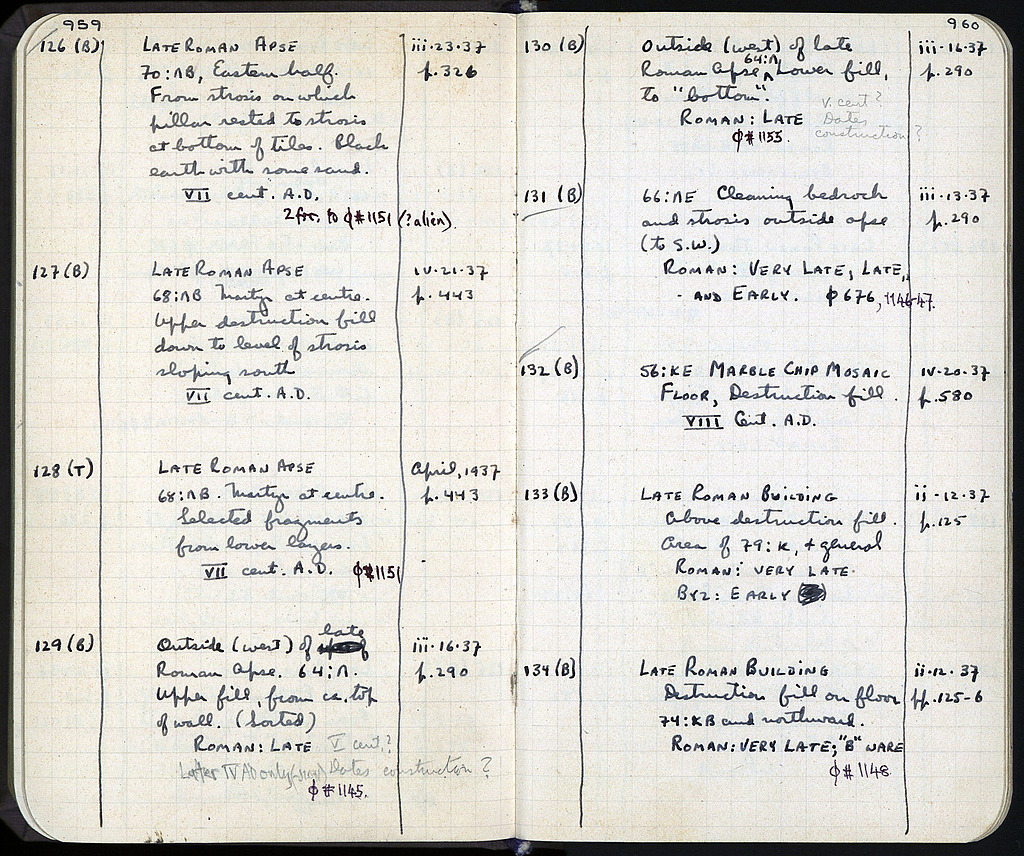 959
126 (B) LATE ROMAN APSE iii·23·37
70:ΛB, Eastern half. p.326
From strosis on which
pillar rested to strosis
at bottom of tiles. Black
earth with some sand.
VII cent. A.D.
2 fr. to φ#1151 (?:alien).
127 (B) LATE ROMAN APSE iv·21·37
68:ΛB Martyr at centre. p.443
Upper destruction fill
down to level of strosis
sloping south
VII cent. A.D.
128 (T) LATE ROMAN APSE April, 1937
68:ΛB. Martyr at centre. p.443
Selected fragments
from lower layers.
VII cent. A.D. φ#1151
late
129 (B) Outside (west) of iii·16·37
Roman Apse. 64:Λ. p.290
Upper fill, from ca. top
of wall. (Sorted)
ROMAN: LATE V cent.?
IV AD only Dates construction?
φ#1145.
960
130 (B) Outside (west) of late iii·16·37
64:Λ
Roman Apse Lower fill, p.290
to "bottom".
V. cent?
ROMAN: LATE Dates
φ#1155. construction?
131 (B) 66:ΛE Cleaning bedrock iii·13·37
and strosis outside apse p.290
(to S.W.)
ROMAN: VERY LATE, LATE,
AND EARLY. φ 676, 1146-47.
132 (B) 56:KE MARBLE CHIP MOSAIC iv·20·37
FLOOR, Destruction fill. p.580
VIII Cent. A.D.
133 (B) LATE ROMAN BUILDING ii·12·37
Above destruction fill. p.125
Area of 79:K, + general
ROMAN: VERY LATE.
BYZ: EARLY
134 (B) LATE ROMAN BUILDING ii·12·37
Destruction fill on floor pp.125-6
74:KB and northward.
ROMAN: VERY LATE; "B" WARE
φ#1148